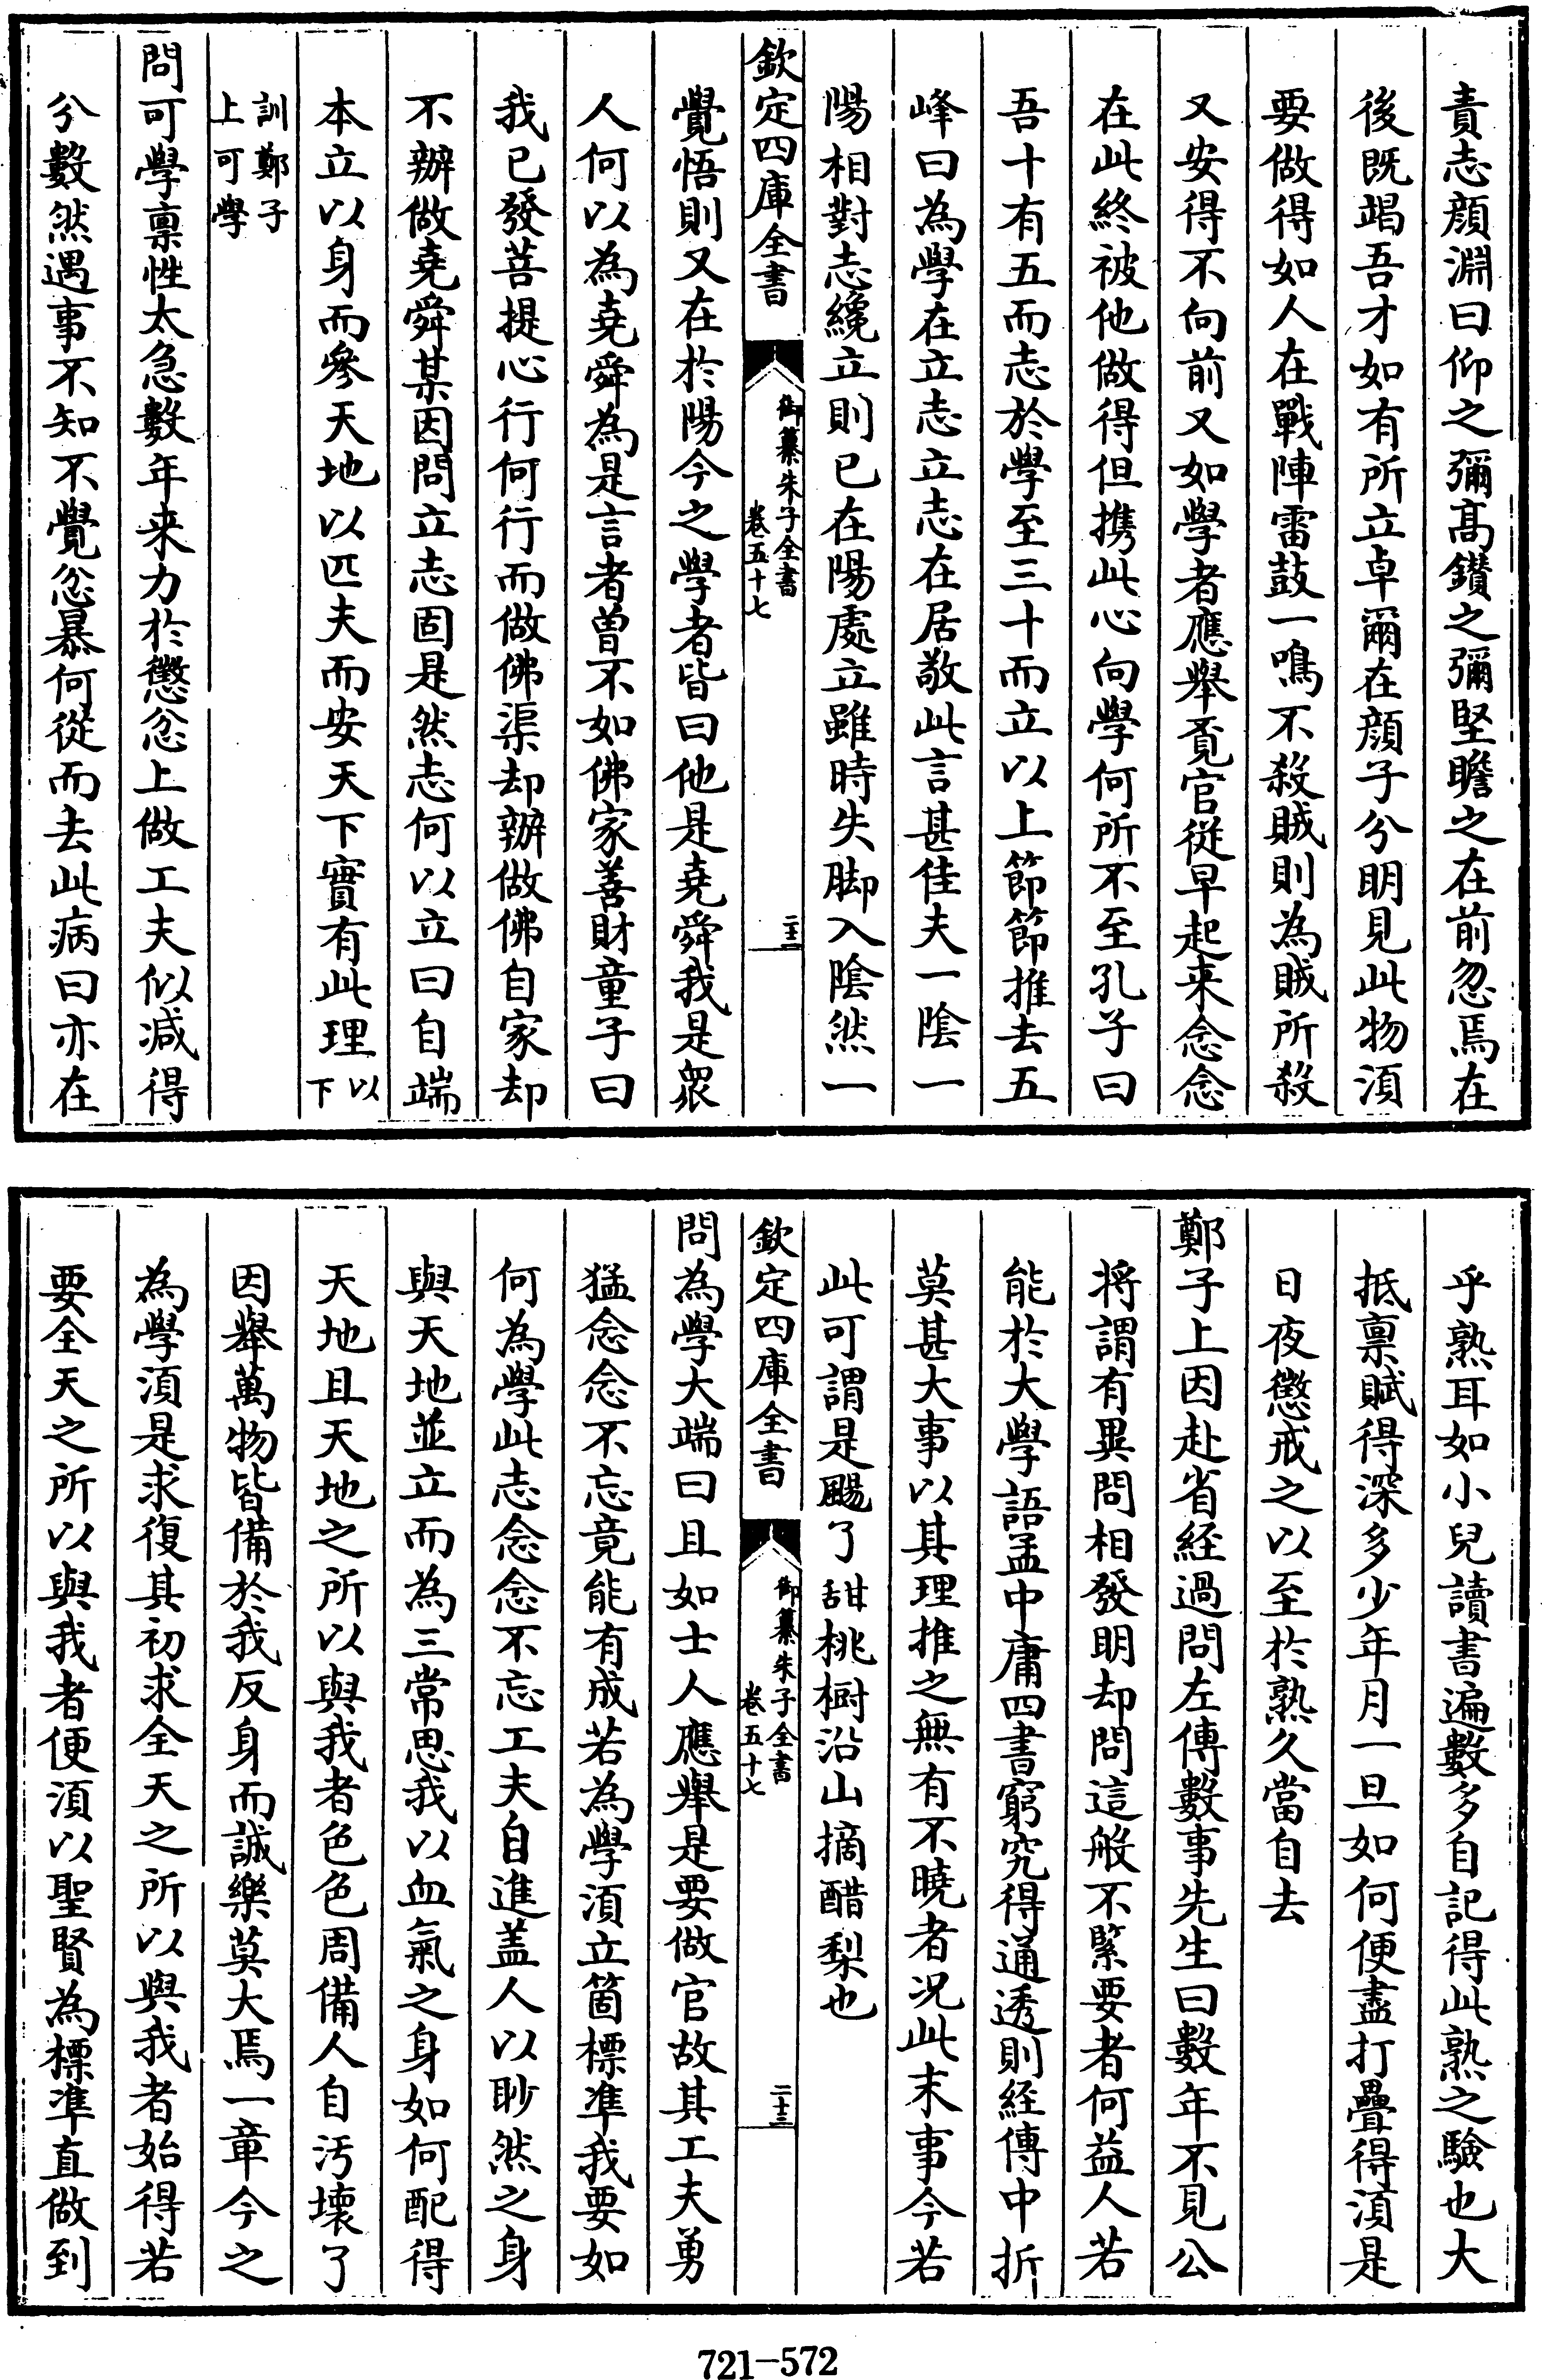 責志顏淵曰仰之彌髙鑽之彌堅瞻之在前忽焉在
後既竭吾才如有所立卓爾在顏子分明見此物湏
要做得如人在戰陣雷鼓一鳴不殺賊則為賊所殺
又安得不向前又如學者應舉覔官從早起来念念
在此終被他做得但携此心向學何所不至孔子曰
吾十有五而志於學至三十而立以上節節推去五
峰曰為學在立志立志在居敬此言甚佳夫一陰一
陽相對志纔立則已在陽處立雖時失脚入陰然一
欽定四庫全書
御纂朱子全書
卷五十七
二十二
覺悟則又在於陽今之學者皆曰他是堯舜我是衆
人何以為堯舜為是言者曾不如佛家善財童子曰
我已發菩提心行何行而做佛渠却辦做佛自家却
不辦做堯舜某因問立志固是然志何以立曰自端
本立以身而參天地以匹夫而安天下實有此理以下
訓鄭子
上可學
問可學稟性太急數年来力於懲忿上做工夫似減得
分數然遇事不知不覺忿暴何從而去此病曰亦在
乎熟耳如小兒讀書遍數多自記得此熟之驗也大
抵稟賦得深多少年月一旦如何便盡打疊得湏是
日夜懲戒之以至於熟久當自去
鄭子上因赴省經過問左傳數事先生曰數年不見公
將謂有異問相發明却問這般不緊要者何益人若
能於大學語孟中庸四書窮究得通透則經傳中折
莫甚大事以其理推之無有不曉者况此末事今若
此可謂是颺了甜桃樹沿山摘醋梨也
欽定四庫全書
御纂朱子全書
卷五十七
二十三
問為學大端曰且如士人應舉是要做官故其工夫勇
猛念念不忘竟能有成若為學湏立箇標準我要如
何為學此志念念不忘工夫自進盖人以眇然之身
與天地並立而為三常思我以血氣之身如何配得
天地且天地之所以與我者色色周備人自汚壞了
因舉萬物皆備於我反身而誠樂莫大焉一章今之
為學湏是求復其初求全天之所以與我者始得若
要全天之所以與我者便湏以聖賢為標準直做到
721-572